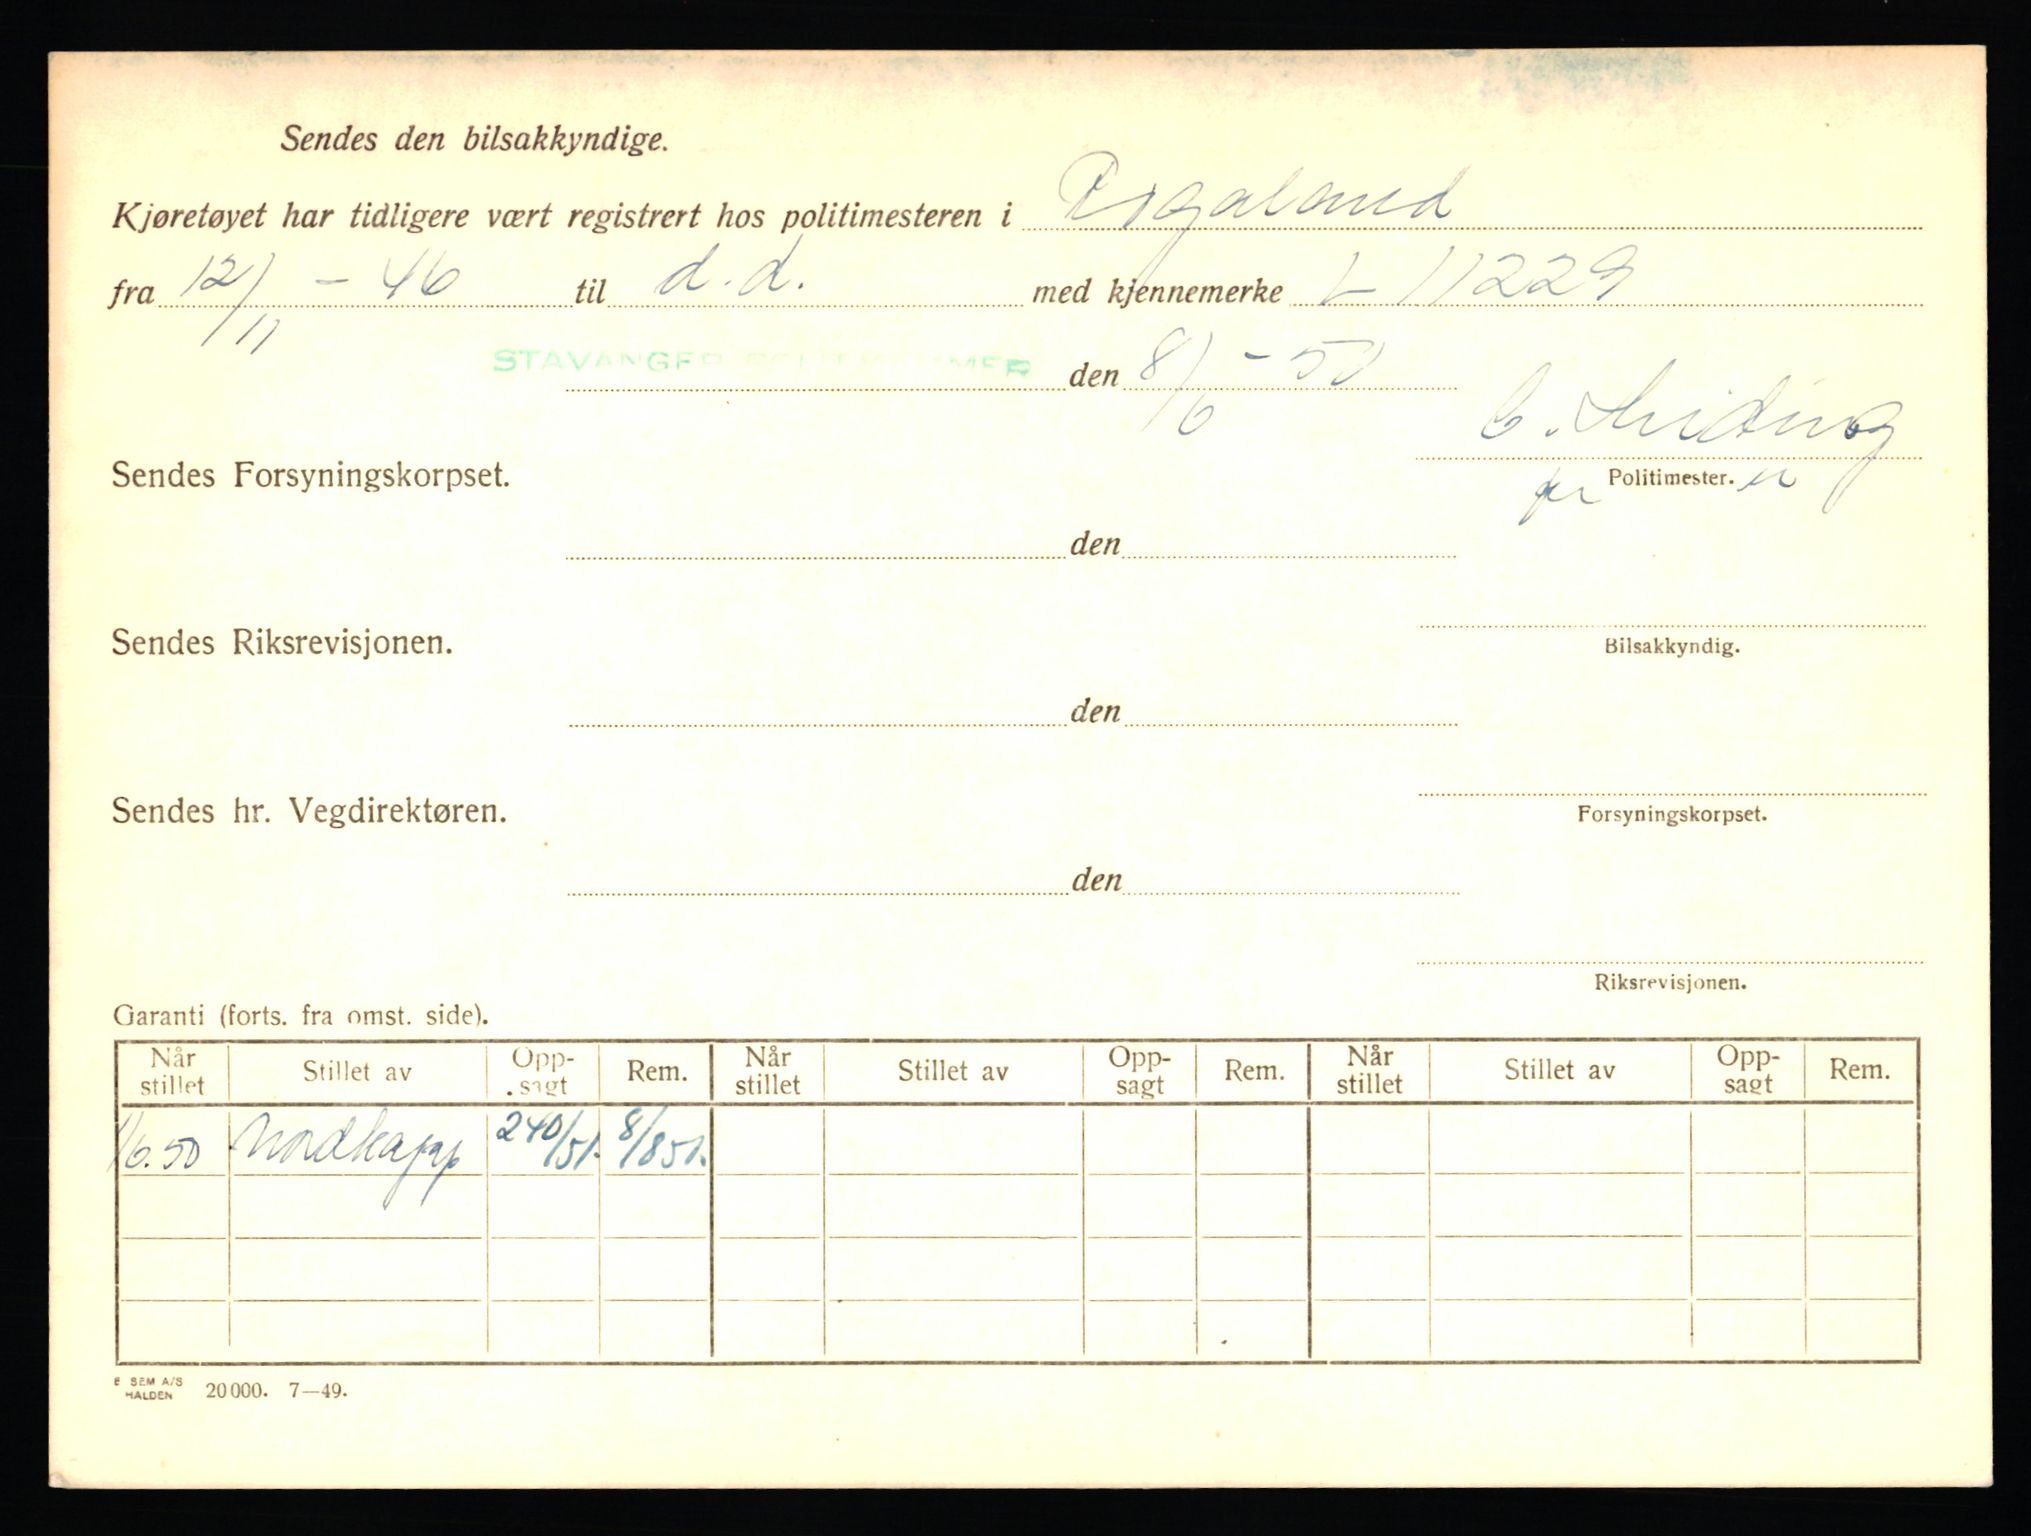 Sendes den bilsakkyndige.
Kjøretøyet har tidligere vært registrert hos politimesteren i Rogaland
fra 12/11 - 46 til d.d. med kjennemerke L 11229
STAVANGER POLITIKAMMER den 8/6 - 50
Sendes Forsyningskorpset.
Politimester.
den
Sendes Riksrevisjonen.
Bilsakkyndig.
den
Sendes hr. Vegdirektøren.
Forsyningskorpset.
den
Riksrevisjonen.
Garanti (forts. fra omst. side).
Når stillet Stillet av Opp-sagt Rem. Når stillet Stillet av Opp-sagt Rem. Når stillet Stillet av Opp-sagt Rem.
1/6.50 Nordkapp 240/51. 8/851.
E SEM A/S
HALDEN 20000. 7—49.